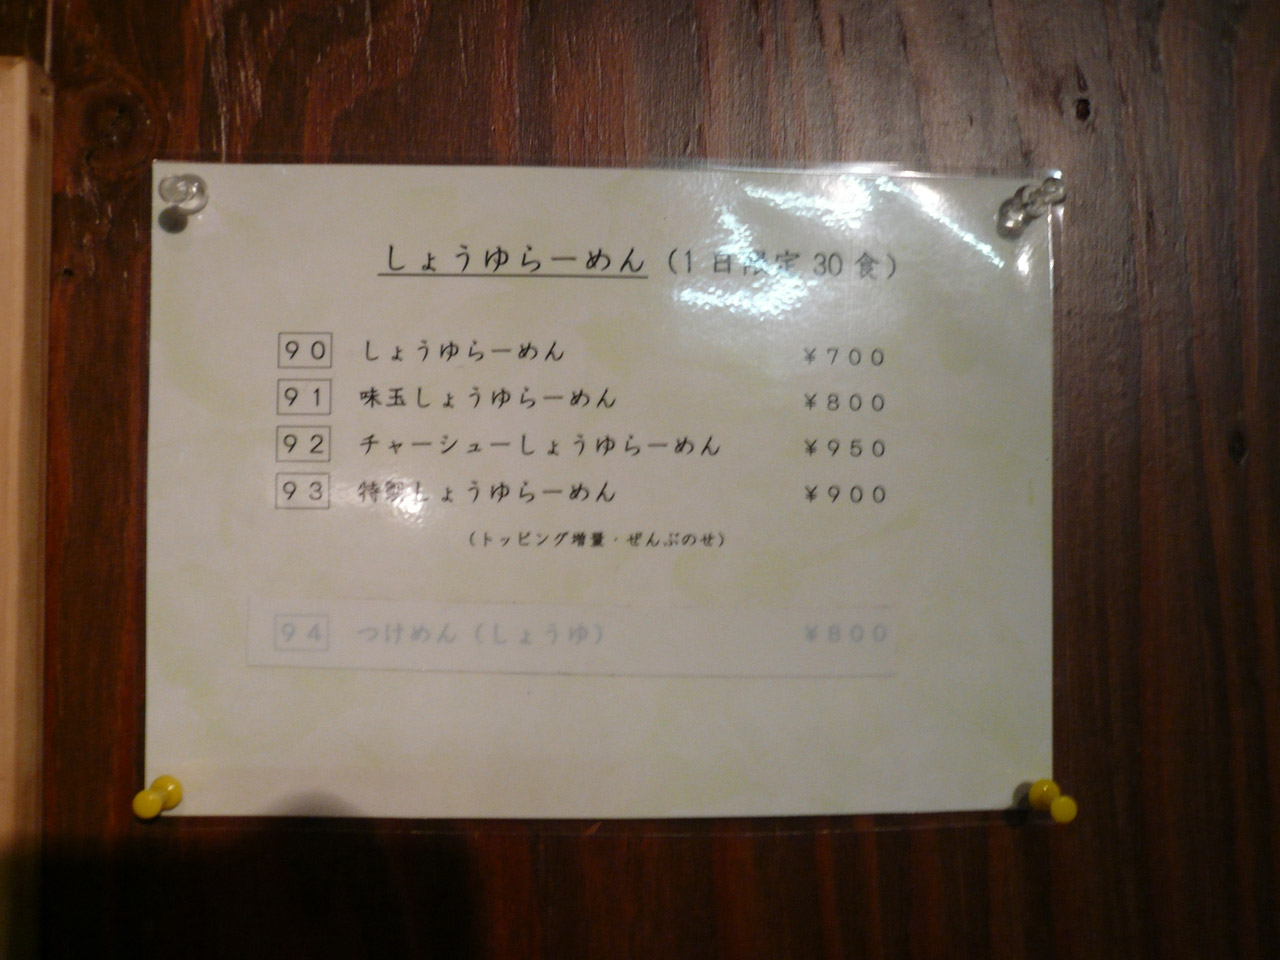 しょうゆらーめん（1日限定30食）
90 しょうゆらーめん ¥700
91 味玉しょうゆらーめん ¥800
92 チャーシューしょうゆらーめん ¥950
93 特製しょうゆらーめん ¥900
（トッピング増量・ぜんぶのせ）
94 つけめん（しょうゆ） ¥800